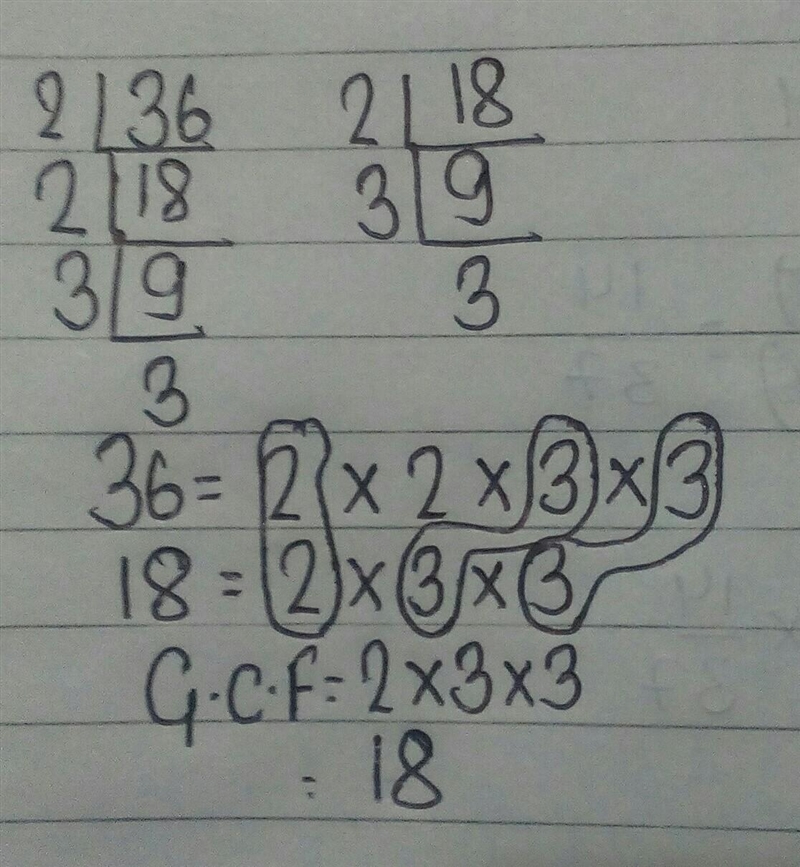 2 36 2 18
2 18 3 9
3 9 3
3
36 = 2 × 2 × 3 × 3
18 = 2 × 3 × 3
G.C.F = 2 × 3 × 3
= 18